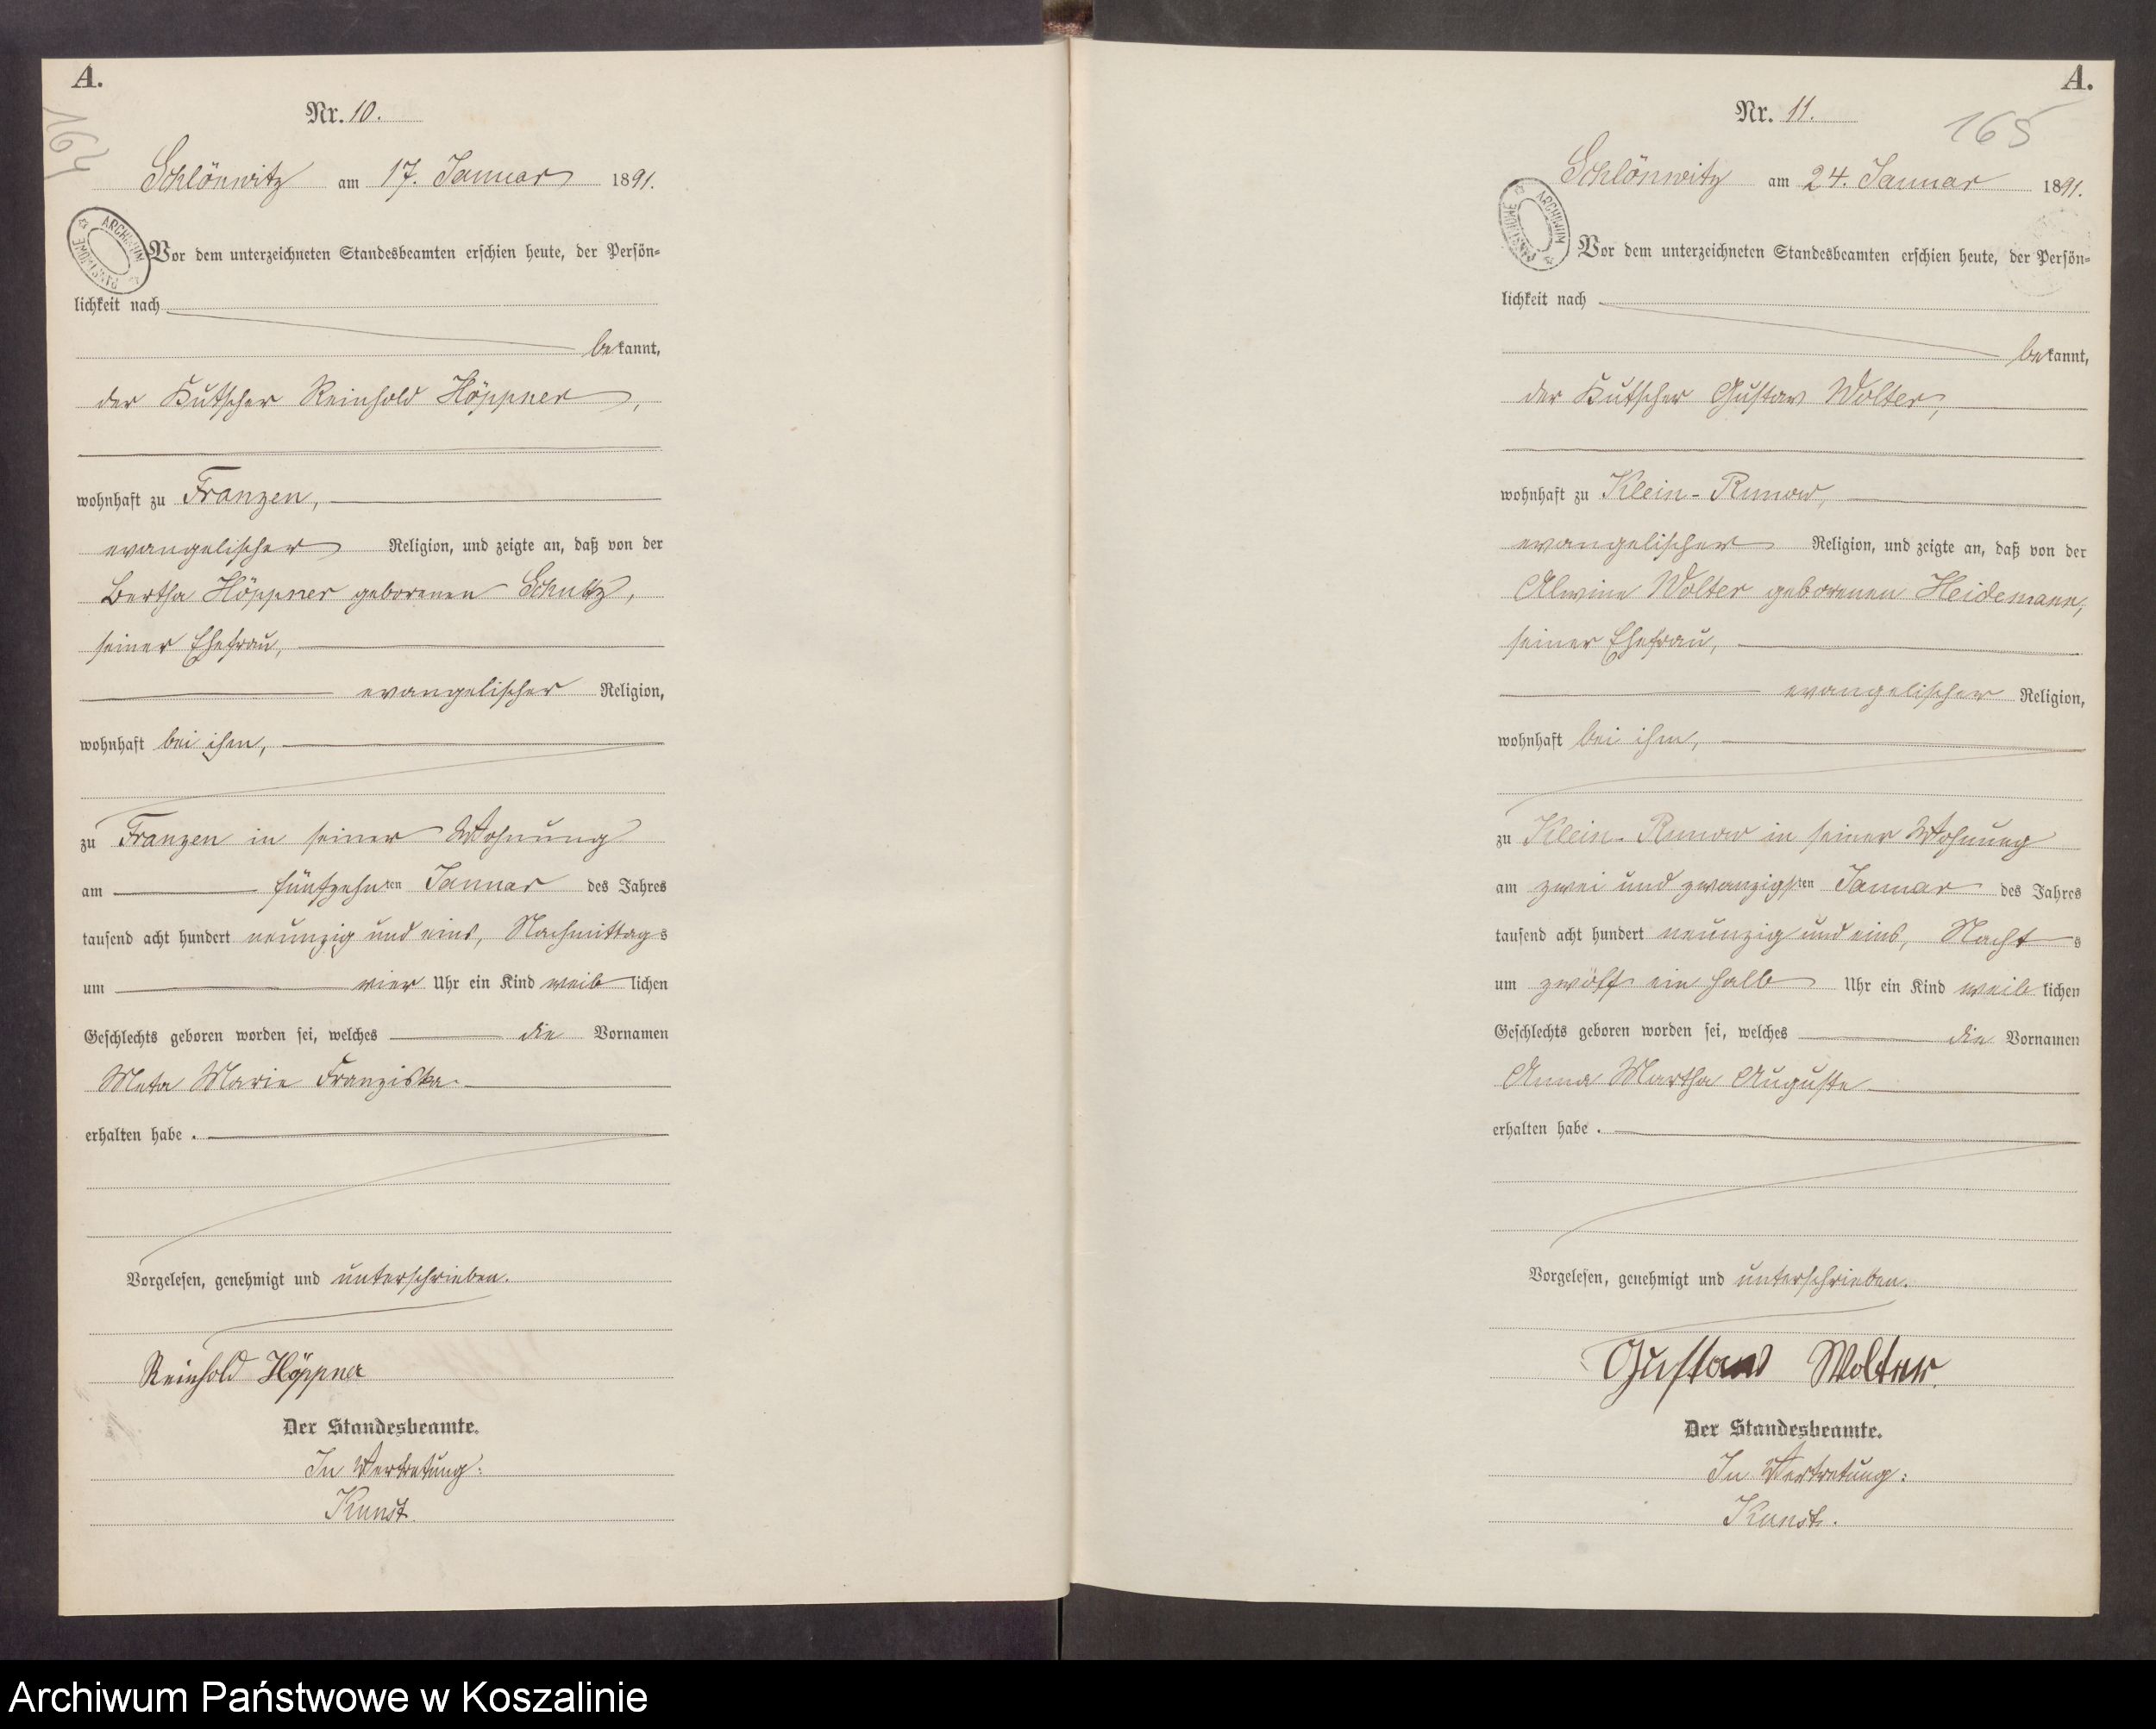 A.
164
Nr. 10.
Schlönwitz am 17. Januar 1891.
ARCHIWUM PAŃSTWOWE
Vor dem unterzeichneten Standesbeamten erschien heute, der Persön-
lichkeit nach
bekannt,
der Kutscher Reinhold Höppner,
wohnhaft zu Franzen,
evangelischer Religion, und zeigte an, daß von der
Bertha Höppner geborenen Schultz,
seiner Ehefrau,
evangelischer Religion,
wohnhaft bei ihm,
zu Franzen in seiner Wohnung
am fünfzehnten Januar des Jahres
tausend acht hundert neunzig und eins, Nachmittags
um vier Uhr ein Kind weiblichen
Geschlechts geboren worden sei, welches die Vornamen
Meta Marie Franziska
erhalten habe.
Vorgelesen, genehmigt und unterschrieben.
Reinhold Höppner
Der Standesbeamte.
In Vertretung:
Kunst.
A.
165
Nr. 11.
Schlönwitz am 24. Januar 1891.
ARCHIWUM PAŃSTWOWE
Vor dem unterzeichneten Standesbeamten erschien heute, der Persön-
lichkeit nach
bekannt,
der Kutscher Gustav Wolter,
wohnhaft zu Klein-Runow,
evangelischer Religion, und zeigte an, daß von der
Alwine Wolter geborenen Heidemann,
seiner Ehefrau,
evangelischer Religion,
wohnhaft bei ihm,
zu Klein-Runow in seiner Wohnung
am zwei und zwanzigsten Januar des Jahres
tausend acht hundert neunzig und eins, Nachts
um zwölf ein halb Uhr ein Kind weiblichen
Geschlechts geboren worden sei, welches die Vornamen
Anna Martha Auguste
erhalten habe.
Vorgelesen, genehmigt und unterschrieben.
Gustav Wolter.
Der Standesbeamte.
In Vertretung:
Kunst.
Archiwum Państwowe w Koszalinie